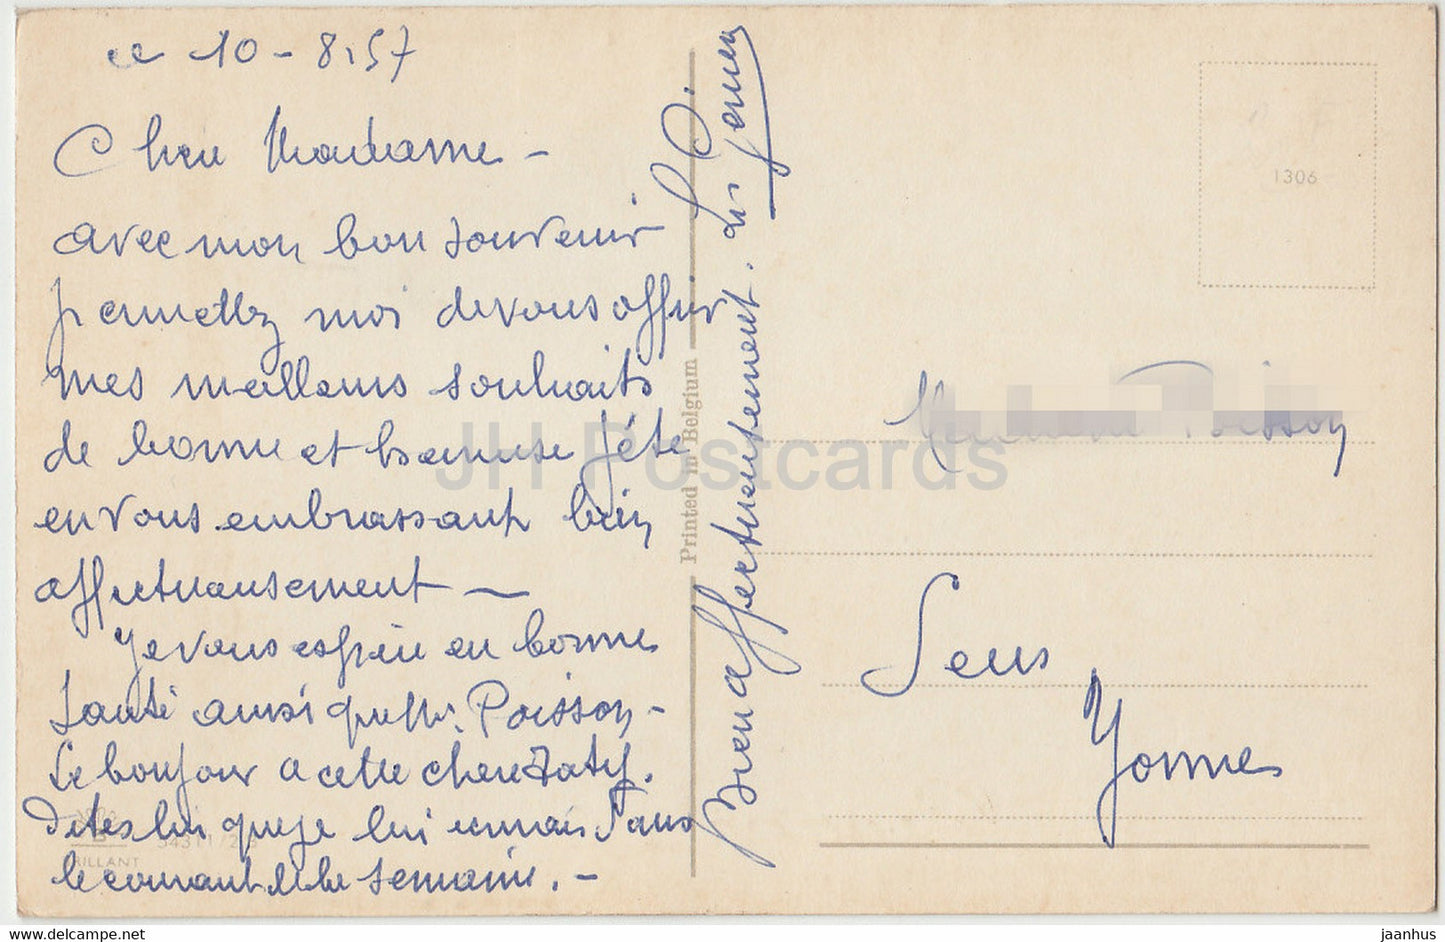 ce 10-8.57
Chere Madame -
avec mon bon souvenir
permettez moi de vous offrir
mes meilleurs souhaits
de bonne et heureuse fête
en vous embrassant bien
affectueusement —
Je vous espère en bonne
santé ainsi que Mr. Poisson -
Le bonjour a cette chere
dites lui que je lui ecrirai dans
le courant de la semaine. -
Bien affectueusement.
Printed in Belgium
1306
Poisson
Sens
Yonne
54311/2
BRILLANT
JH Postcards
delcampe.net
jaanhus